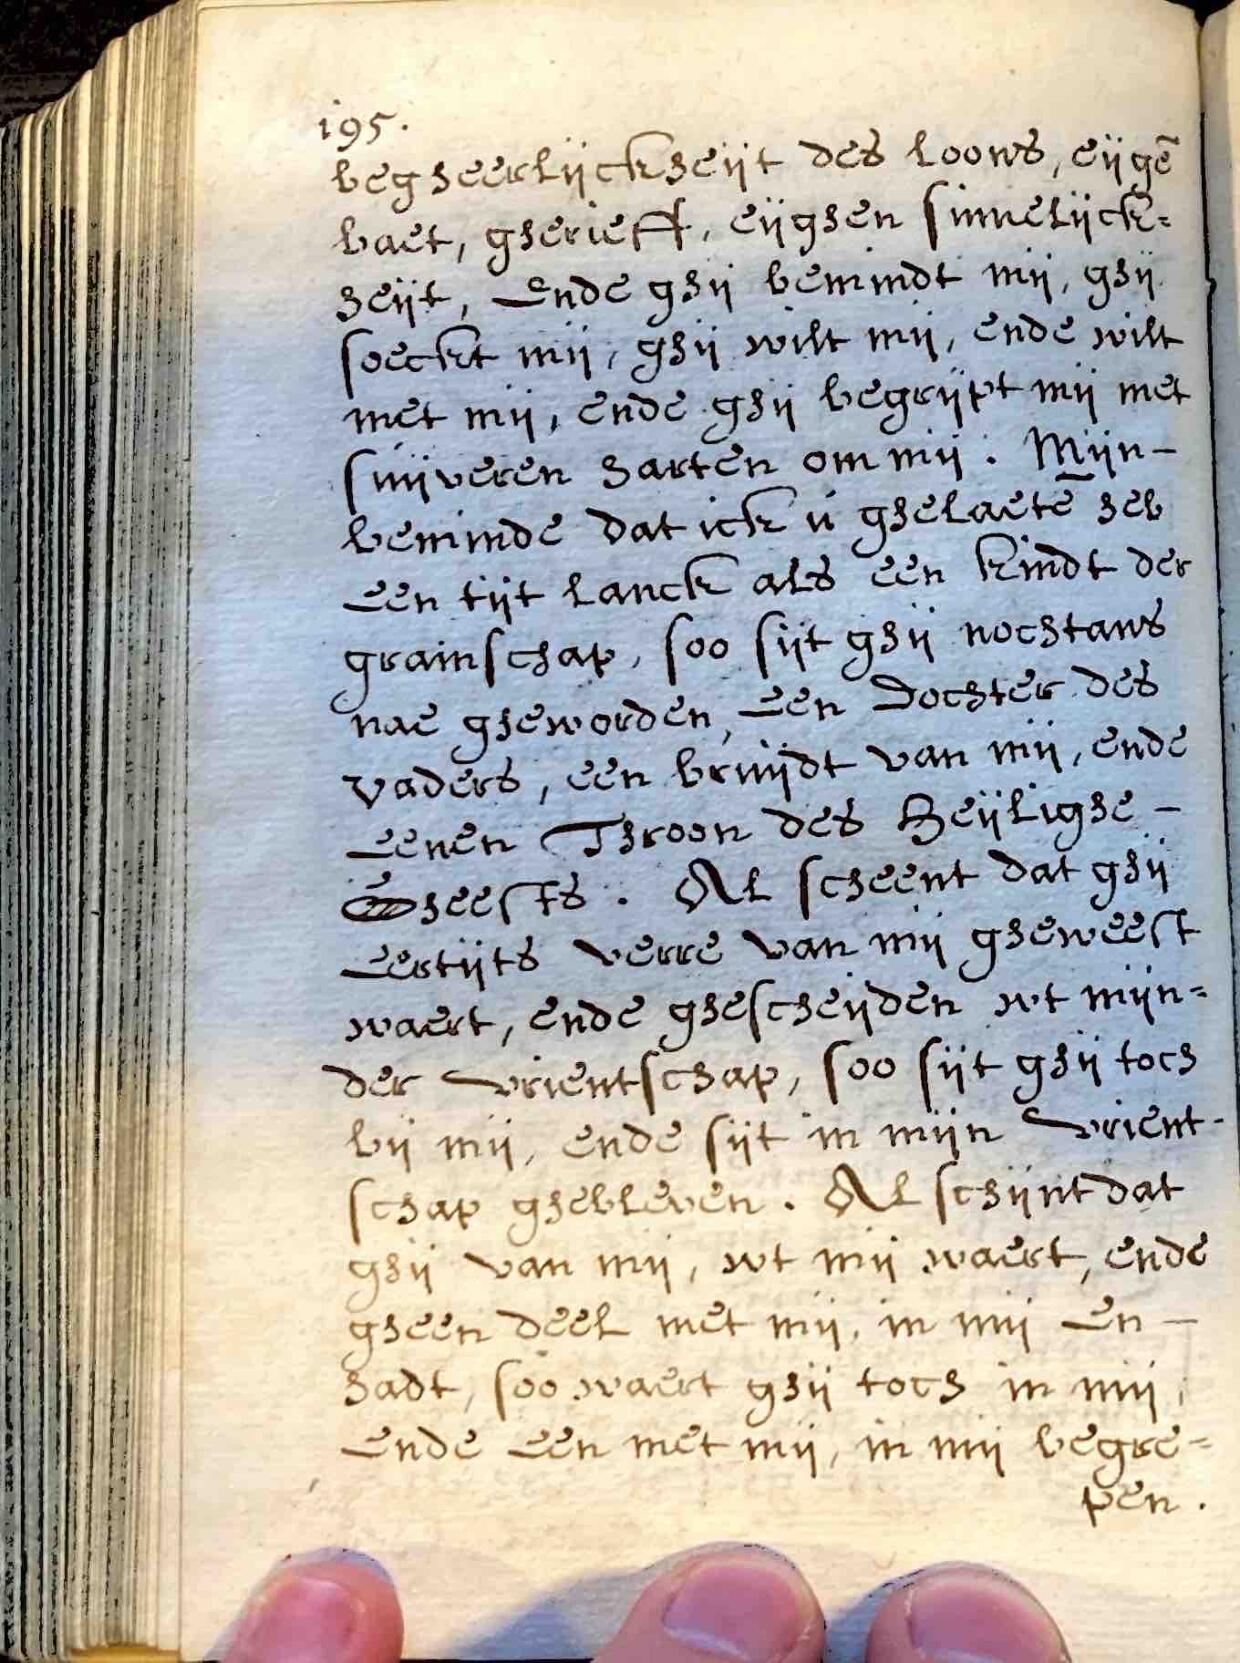 195.
begheerlijckheijt des loons, eijgē
baet, gherieff, eijghen sinnelijck=
heijt, Ende ghij bemindt mij, ghij
soeckt mij, ghij wilt mij, ende wilt
met mij, ende ghij begrijpt mij met
suijveren harten om mij. Mijn-
beminde dat ick ú ghelaetē heb
Een tijt lanck als een kindt der
gramschap, soo sijt ghij nochtans
nae gheworden, Een Dochter des
vaders, een bruijdt van mij, ende
Eenen Throon des Heijlighe -
Gheests. Al scheent dat ghij
Eertijts verre van mij gheweest
waert, ende ghescheijden wt mijn=
der vrientschap, soo sijt ghij toch
bij mij, ende sijt in mijn vrient-
schap ghebleven. Al schijnt dat
ghij van mij, wt mij waert, ende
gheen deel met mij, in mij En -
hadt, soo waert ghij toch in mij,
Ende Een met mij, in mij begre=
pen.